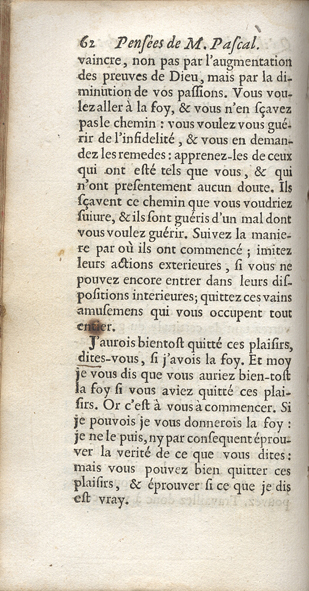 62 Pensées de M. Pascal.
vaincre, non pas par l'augmentation
des preuves de Dieu, mais par la di-
minution de vos passions. Vous vou-
lez aller à la foy, & vous n'en sçavez
pas le chemin : vous voulez vous gué-
rir de l'infidelité, & vous en deman-
dez les remedes : apprenez-les de ceux
qui ont esté tels que vous, & qui
n'ont presentement aucun doute. Ils
sçavent ce chemin que vous voudriez
suiure, & ils sont guéris d'un mal dont
vous voulez guérir. Suivez la manie-
re par où ils ont commencé ; imitez
leurs actions exterieures, si vous ne
pouvez encore entrer dans leurs dis-
positions interieures; quittez ces vains
amusemens qui vous occupent tout
entier.
J'aurois bientost quitté ces plaisirs,
dites-vous, si j'avois la foy. Et moy
je vous dis que vous auriez bien-tost
la foy si vous aviez quitté ces plai-
sirs. Or c'est à vous à commencer. Si
je pouvois je vous donnerois la foy :
je ne le puis, ny par consequent éprou-
ver la verité de ce que vous dites :
mais vous pouvez bien quitter ces
plaisirs, & éprouver si ce que je dis
est vray.